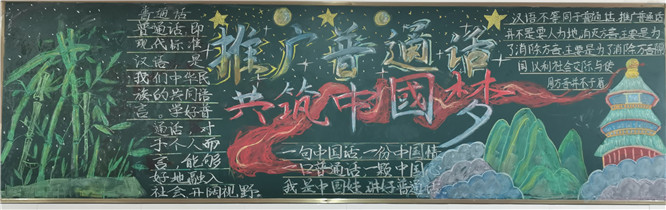 普通话
普通话,即
现代标准
汉语,是
我们中华民
族的共同语
言。学好普
通话,对
于个人而
言,能够
好地融入
社会,开阔视野。
推广普通话
共筑中國梦
一句中国话,一份中国情
一口普通话,一颗中国心
我是中国娃,讲好普通话
汉语不等同于普通话,推广普通话
并不是要人为地消灭方言,主要是为
了消除方言
国,以利社会交际与使
用方言并不矛盾